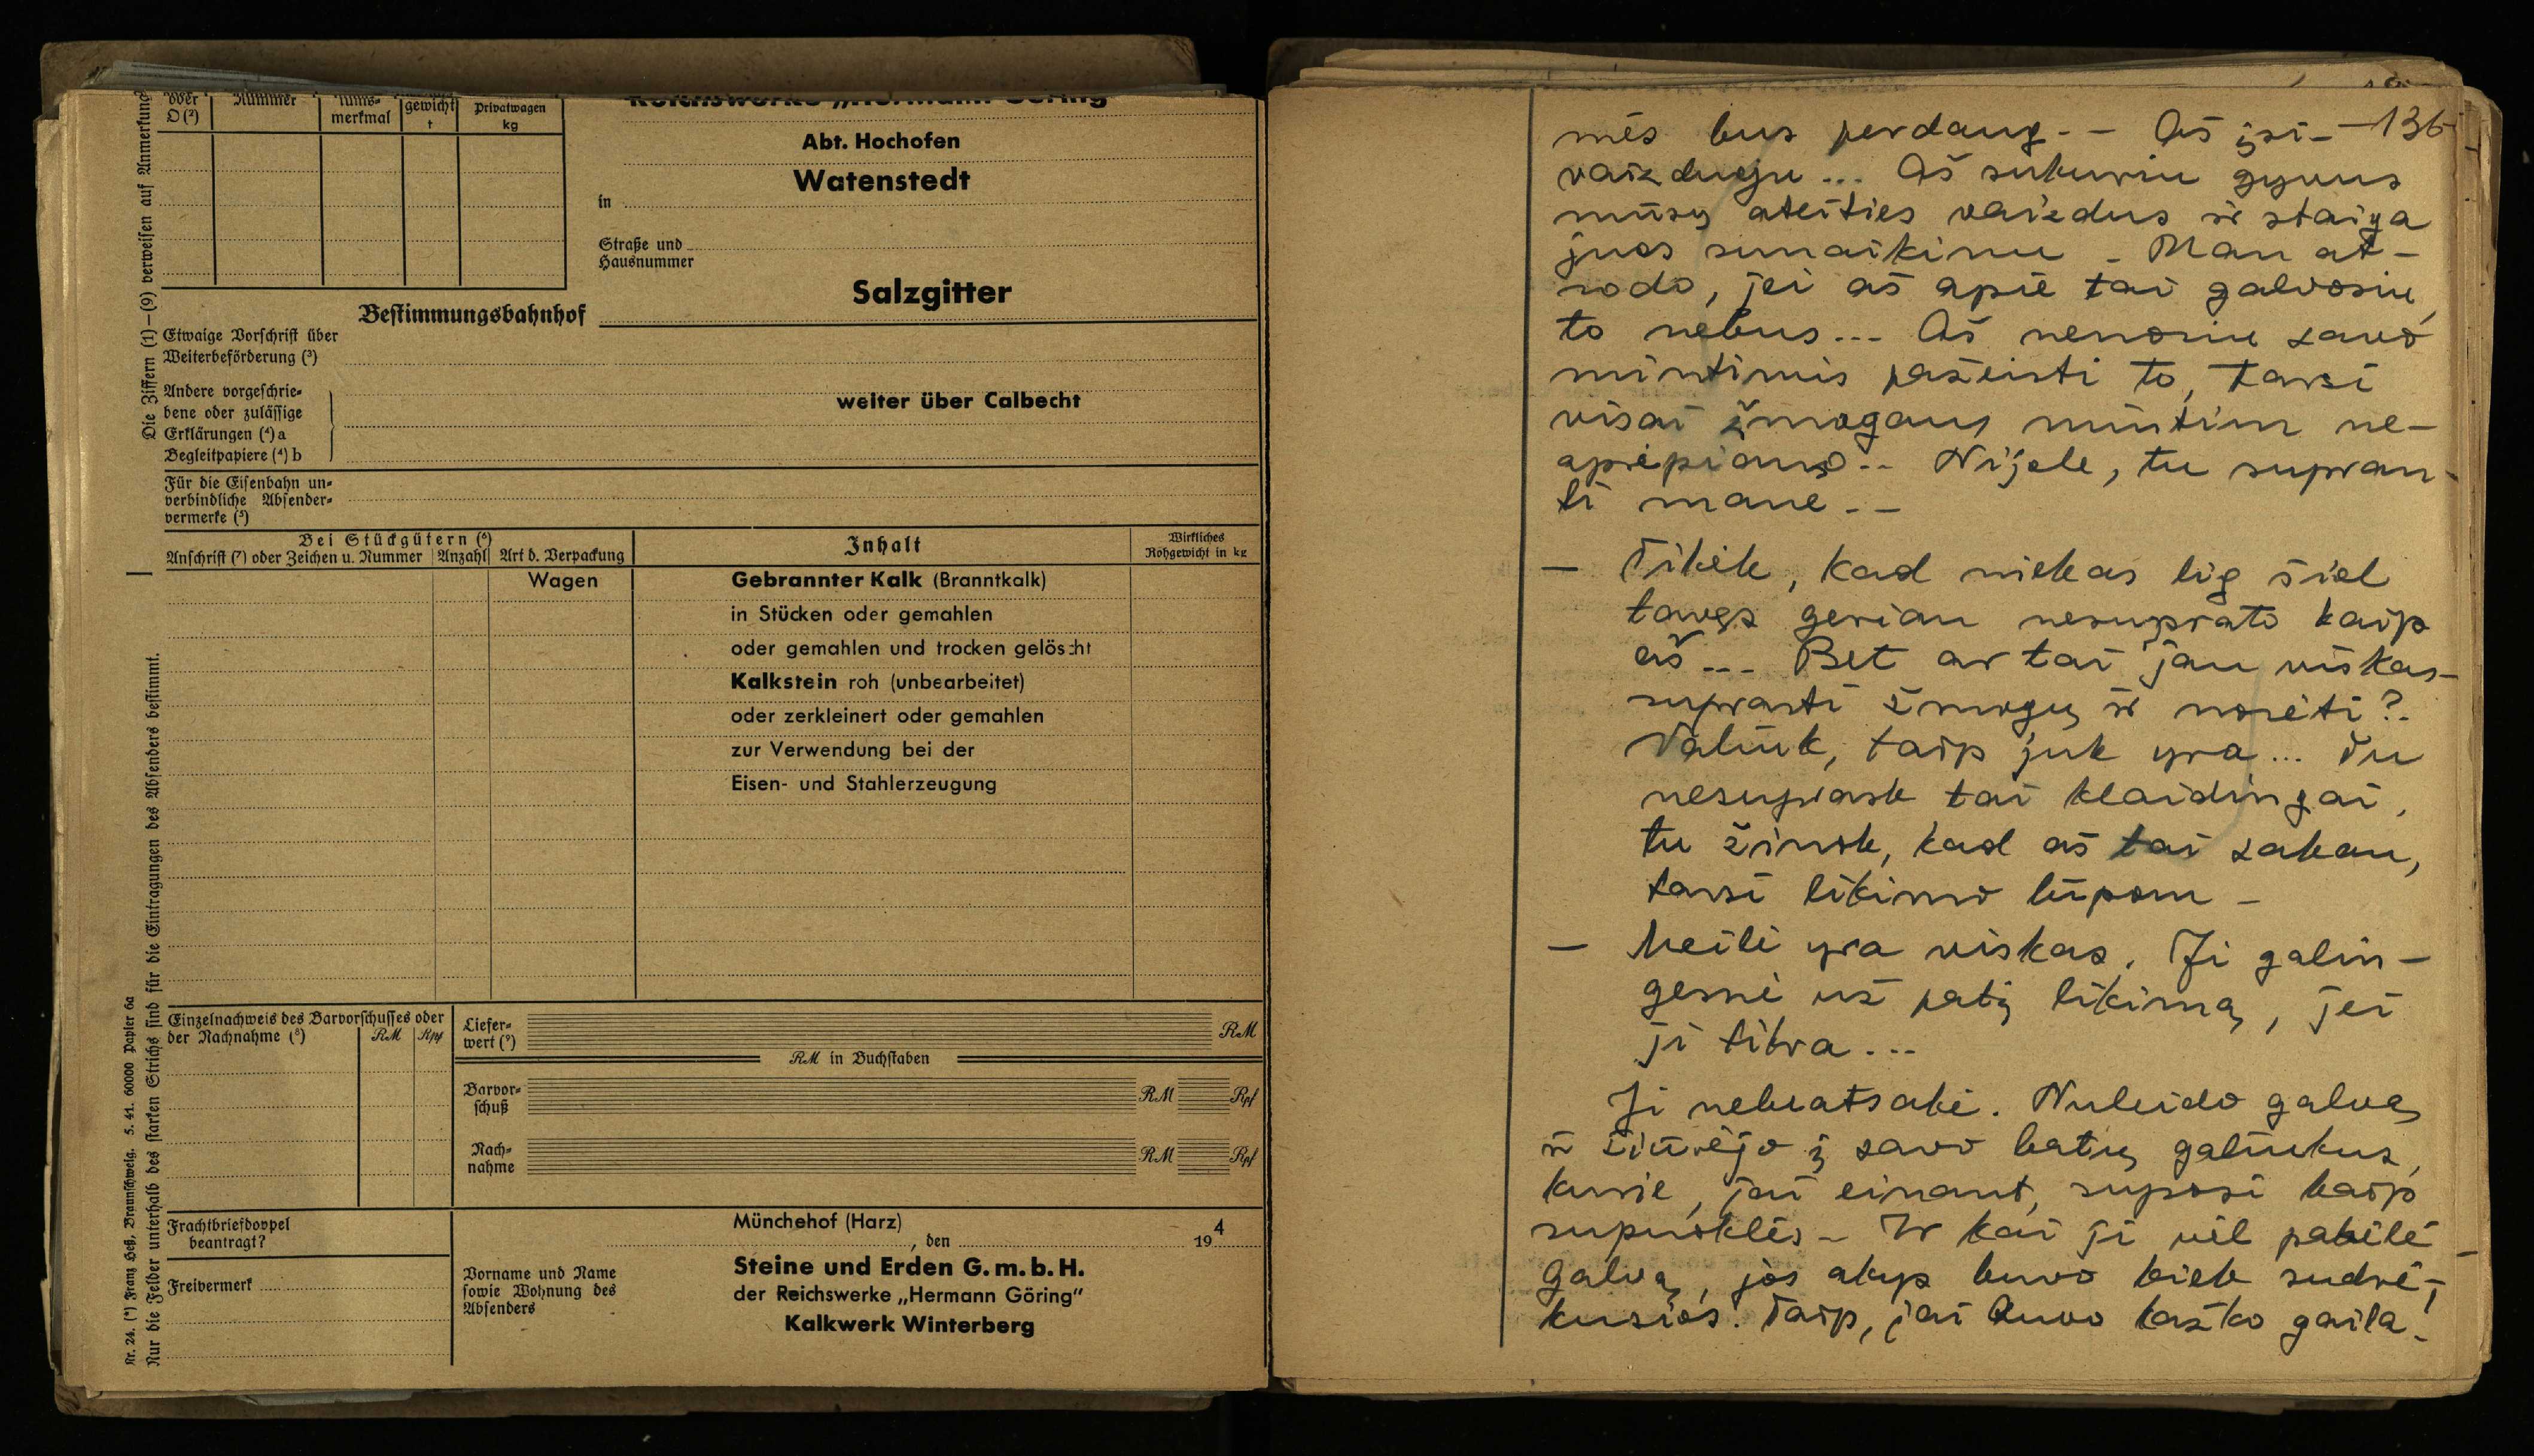 oder
D (²)
Nummer
tums-
merkmal
gewicht
t
Privatwagen
kg
Reichswerke „Hermann Göring"
Abt. Hochofen
Watenstedt
in
Straße und
Hausnummer
Salzgitter
Bestimmungsbahnhof
Etwaige Vorschrift über
Weiterbeförderung (³)
Andere vorgeschrie-
bene oder zulässige
Erklärungen (⁴) a
Begleitpapiere (⁴) b
weiter über Calbecht
Für die Eisenbahn un-
verbindliche Absender-
vermerke (⁵)
Bei Stückgütern (⁶)
Anschrift (⁷) oder Zeichen u. Nummer
Anzahl
Art d. Verpackung
Inhalt
Wirkliches
Rohgewicht in kg
Wagen
Gebrannter Kalk (Branntkalk)
in Stücken oder gemahlen
oder gemahlen und trocken gelöscht
Kalkstein roh (unbearbeitet)
oder zerkleinert oder gemahlen
zur Verwendung bei der
Eisen- und Stahlerzeugung
Einzelnachweis des Barvorschusses oder
der Nachnahme (⁸)
RM
Rpf
Liefer-
wert (⁹)
RM
RM in Buchstaben
Barvor-
schuß
RM
Rpf
Nach-
nahme
RM
Rpf
Frachtbriefdoppel
beantragt?
Freivermerk
Münchehof (Harz)
, den
194
Vorname und Name
sowie Wohnung des
Absenders
Steine und Erden G.m.b.H.
der Reichswerke „Hermann Göring"
Kalkwerk Winterberg
Die Ziffern (1)—(9) verweisen auf Anmerkung
Nur die Felder unterhalb des starken Strichs sind für die Eintragungen des Absenders bestimmt.
Nr. 24. (*) Franz Heß, Braunschweig. 5. 41. 60000 Papier 6a
—136—
mės bus perdaug.-- Aš įsi-
vaizduoju... Aš sukuriu gyvus
mūsų ateities vaizdus ir staiga
juos sunaikinu - Man at-
rodo, jei aš apie tai galvosiu,
to nebus... Aš nenoriu savo
mintimis pažeisti to, tarsi
visai žmogaus mintim ne-
aprėpiamo.. Nijole, tu supran-
ti mane.--
— Tikėk, kad niekas lig šiol
tavęs geriau nesuprato kaip
aš... Bet ar tai jau viskas-
suprasti žmogų ir norėti?.
Valiuk, taip juk yra... Tu
nesuprask tai klaidingai,
tu žinok, kad aš tai sakau,
tarsi likimo lūpom -
— Meilė yra viskas. Ji galin-
gesnė už patį likimą, jei
ji tikra...
Ji nebeatsakė. Nuleido galvą
ir žiūrėjo į savo batų galiukus,
kurie, jai einant, suposi kaip
supuoklės - Ir kai ji vėl pakėlė
galvą, jos akys buvo kiek sudrė-
kusios. Taip, jai buvo kažko gaila!